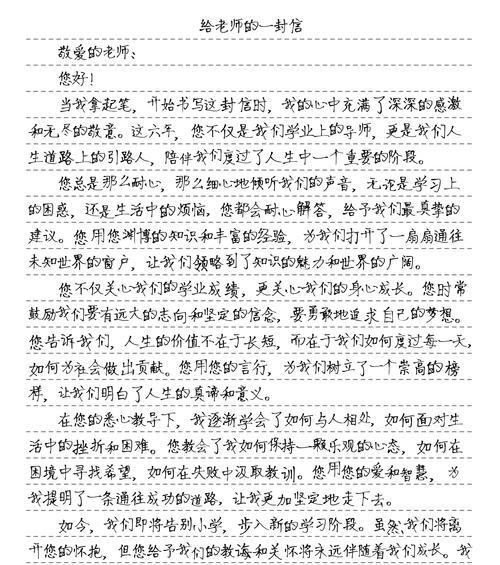 给老师的一封信
敬爱的老师、
您好！
当我拿起笔，开始书写这封信时，我的心中充满了深深的感激
和无尽的敬意。这六年，您不仅是我们学业上的导师，更是我们人
生道路上的引路人，陪伴我们度过了人生中一个重要的阶段。
您总是那么耐心，那么细心地倾听我们的声音，无论是学习上
的困惑，还是生活中的烦恼，您都会耐心解答，给予我们最真挚的
建议。您用您渊博的知识和丰富的经验，为我们打开了一扇扇通往
未知世界的窗户，让我们领略到了知识的魅力和世界的广阔。
您不仅关心我们的学业成绩，更关心我们的身心成长。您时常
鼓励我们要有远大的志向和坚定的信念，要勇敢地追求自己的梦想。
您告诉我们，人生的价值不在于长短，而在于我们如何度过每一天，
如何为社会做出贡献。您用您的言行，为我们树立了一个崇高的榜
样，让我们明白了人生的真谛和意义。
在您的悉心教导下，我逐渐学会了如何与人相处，如何面对生
活中的挫折和困难。您教会了我如何保持一颗乐观的心态，如何在
困境中寻找希望，如何在失败中汲取教训。您用您的爱和智慧，为
我提明了一条通往成功的道路，让我更加坚定地走下去。
如今，我们即将告别小学，步入新的学习阶段。虽然我们将离
开您的怀抱，但您给予我们的教诲和关怀将永远伴随着我们成长。我